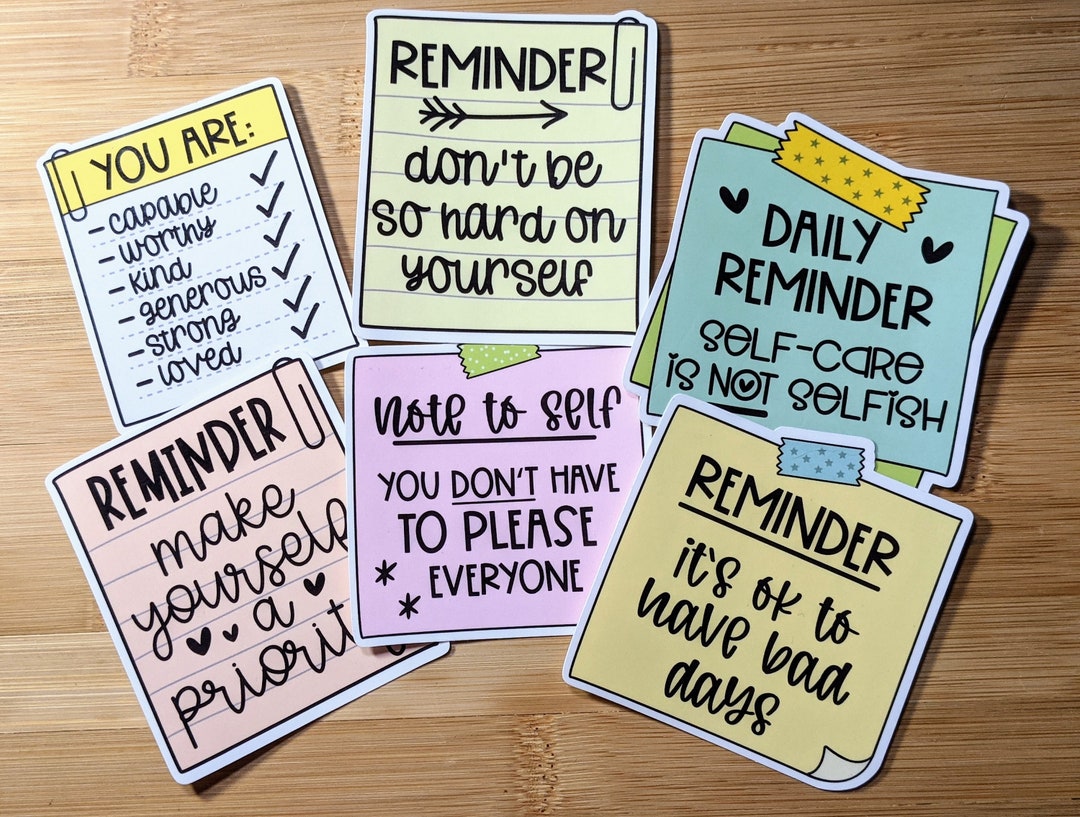 YOU ARE:
- capable
- worthy
- kind
- generous
- strong
- loved
REMINDER
don't be
so hard on
yourself
DAILY
REMINDER
SELF-CARE
IS NOT SELFISH
REMINDER
make
yourself
a
priorit
note to self
YOU DON'T HAVE
TO PLEASE
EVERYONE
REMINDER
it's ok to
have bad
days